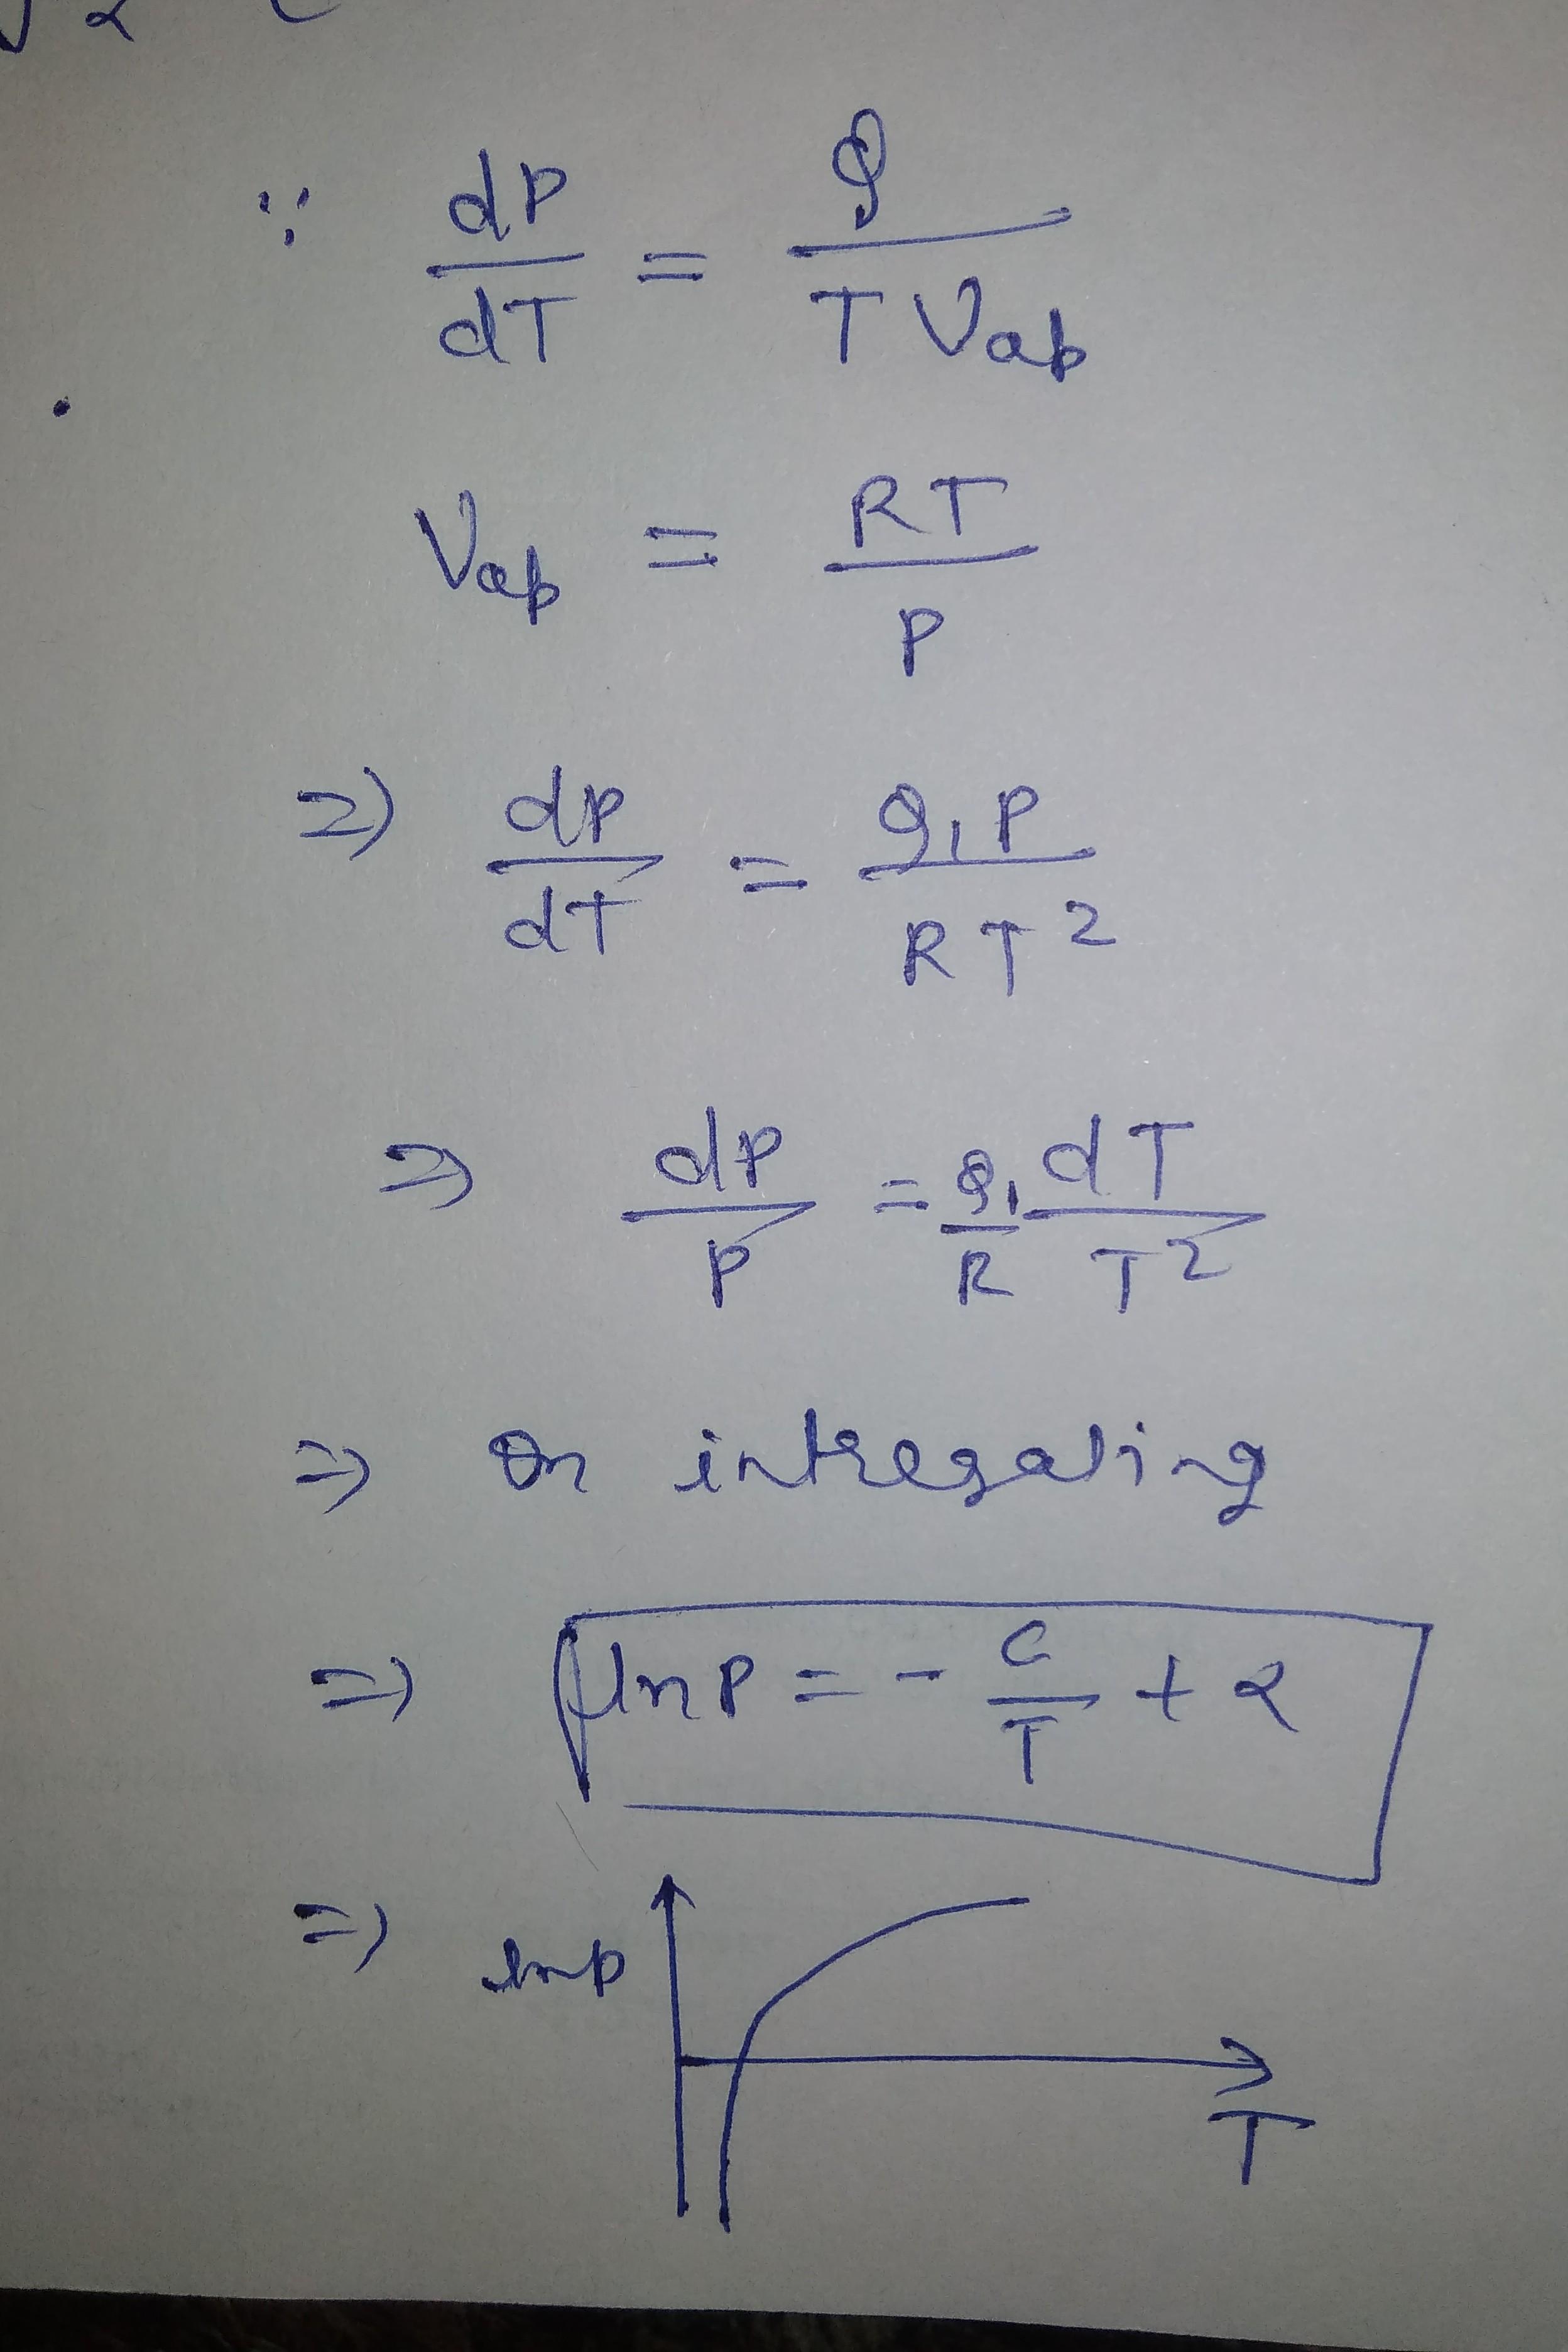 ∵ dP/dT = Q/(T Vap)
Vap = RT/P
⇒ dP/dT = Q₁P/(RT²)
⇒ dP/P = Q₁/R dT/T²
⇒ On intregating
⇒ lnP = - C/T + 2
⇒ lnp
T